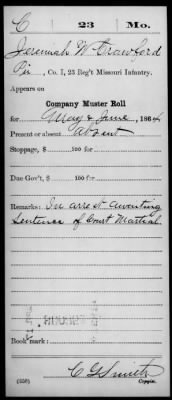 C 23 Mo.
Jeremiah W Crawford
Co. I, 23 Reg't Missouri Infantry.
Appears on
Company Muster Roll
for May & June, 1864
Present or absent Absent
Stoppage, $ 100 for
Due Gov't, $ 100 for
Remarks: In arrest awaiting
Sentence of Court Martial
Book mark:
(858) Copyist.